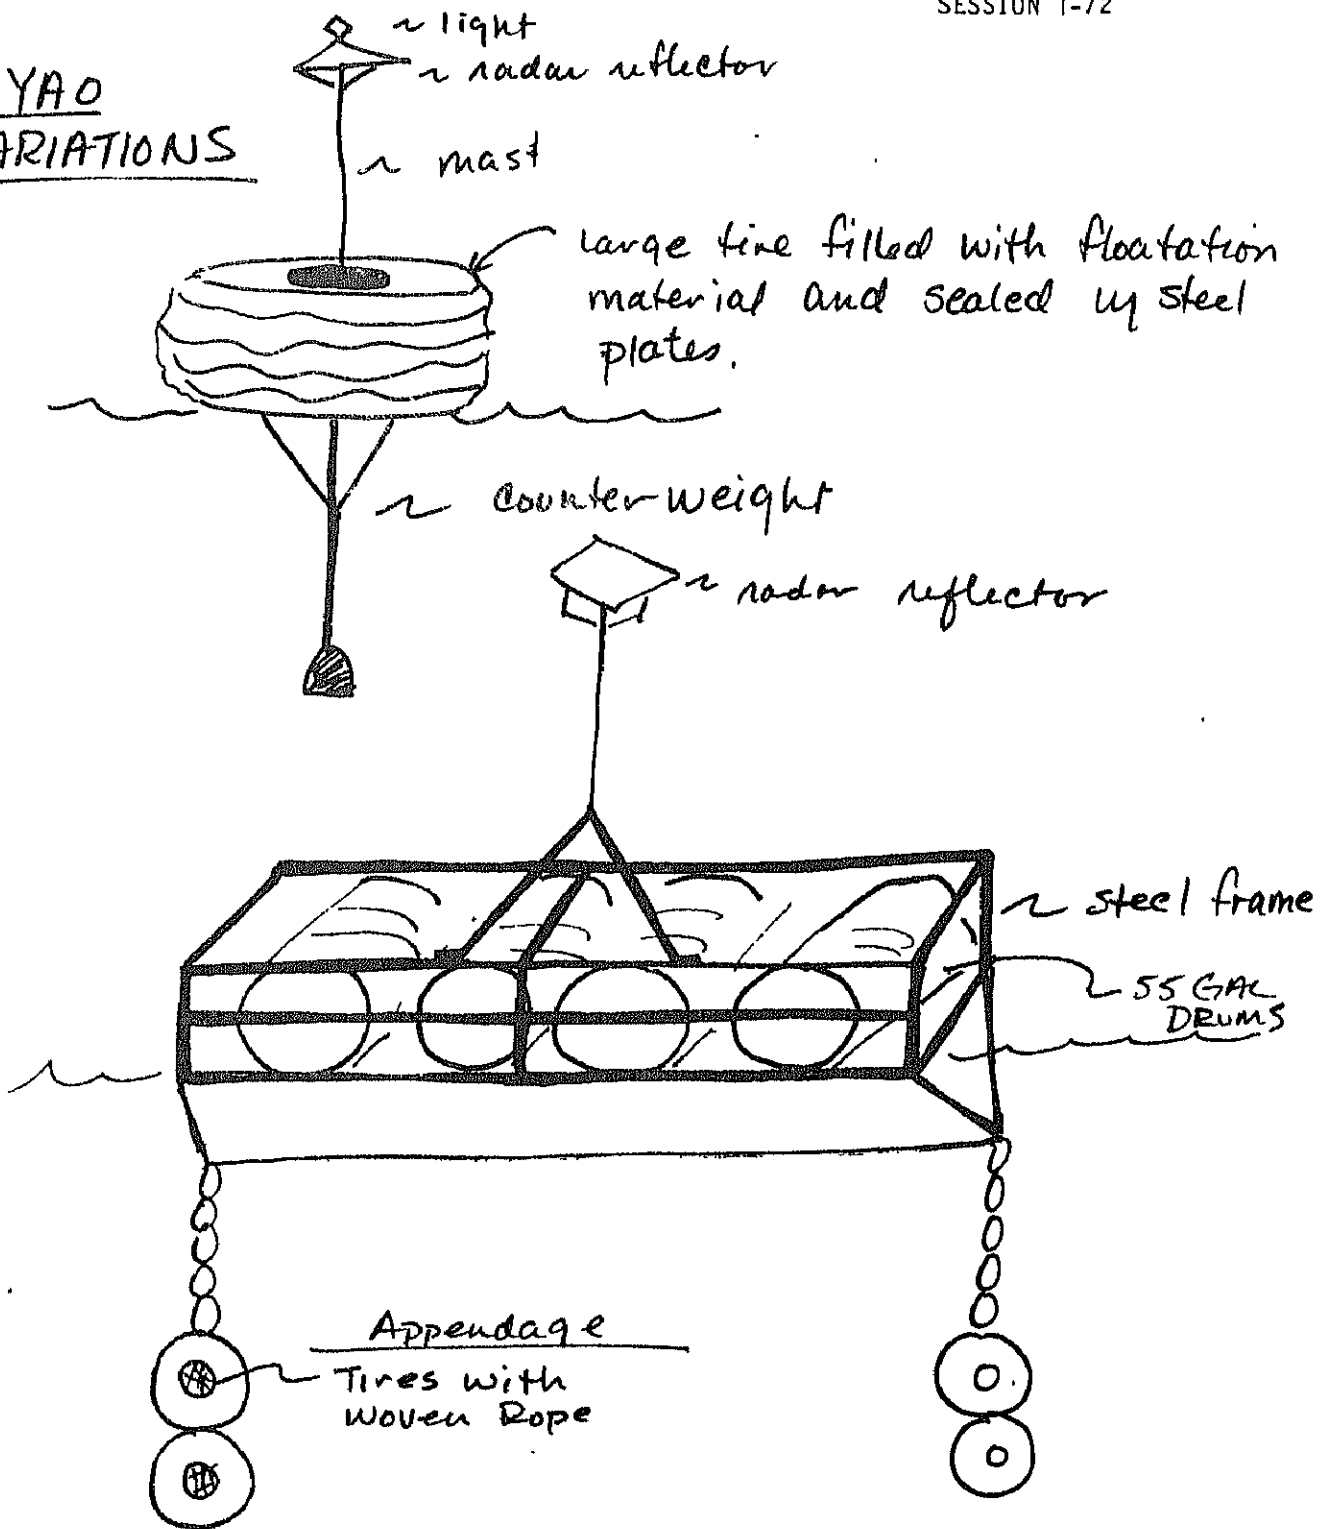 SESSION 1-72
~ light
~ radar reflector
YAO
ARIATIONS
~ mast
large tire filled with floatation
material and sealed w/ steel
plates.
~ counterweight
~ radar reflector
~ steel frame
55 GAL
DRUMS
Appendage
Tires with
Woven Rope